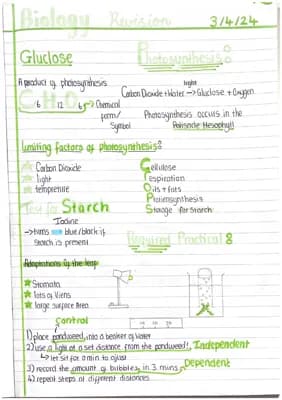 Biology Revision 3/4/24
Glucose
Photosynthesis:
A product of photosynthesis
light
Carbon Dioxide + Water → Glucose + Oxygen
C H O
6 12 6 → Chemical
form/
Symbol
Photosynthesis occurs in the
Palisade Mesophyll
Limiting factors of photosynthesis:
★ Carbon Dioxide
★ light
★ tempreture
Cellulose
respiration
Oils + fats
Protiensynthesis
Storage for starch
Test for Starch
Iodine
→ turns blue/black if
Starch is present
Required Practical:
Adaptations of the leaf
★ Stomata
★ lots of Viens
★ large surface Area
control
10 20 30
1) place pondweed, into a beaker of water
2) use a light at a set distance from the pondweed!, Independent
↳ let sit for a min to ajust
3) record the amount of bubbles, in 3 mins, Dependent
4) repeat steps at different distances